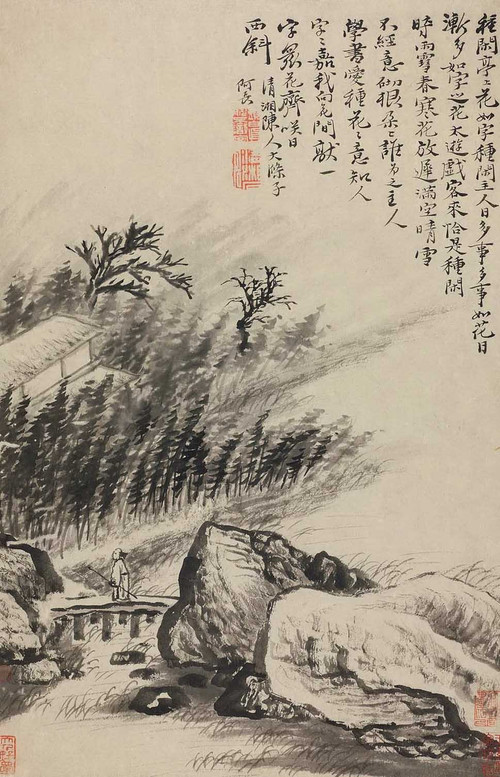 種閑亭上花如字種閑主人日多事多事如花日
漸多如字之花太遊戲客來恰是種閑
時雨霽春寒花放遲滿空晴雪
不經意砌根朵〻誰為之主人
學書愛種花〻意知人
字〻嘉我向花間獻一
字眾花齊咲日
西斜
清湘陳人大滌子
阿長